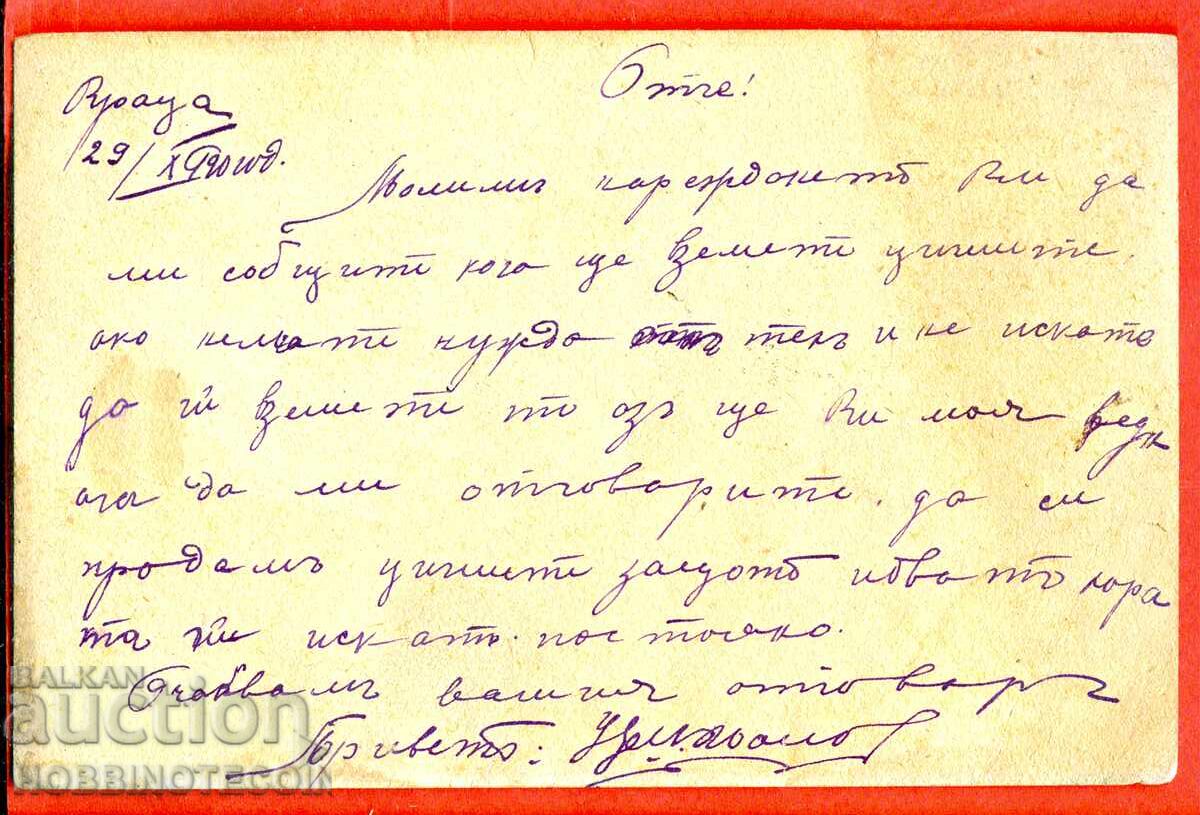 Враца
29/XI 920 год.
Отче!
Молимъ нареждането Ви да
ми собщите кога ще вземете
ако немате нужда отъ техъ и не искате
да ги вземете то азъ ще Ви моля ведн
ага да ми отговорите. да си
продамъ защото идватъ хора
та и ги искатъ постояно.
Очаквамъ вашия отговоръ
Приветъ:
BALKAN
auction
HOBBINOTECOM